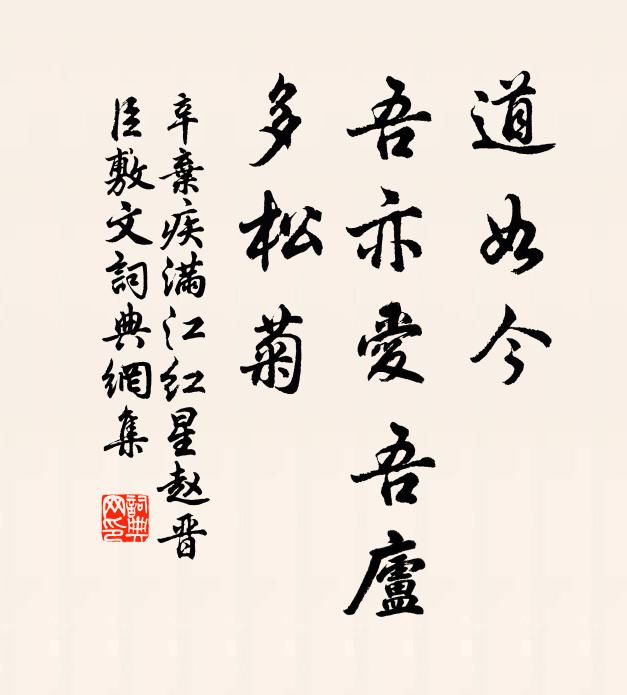 道如今
吾亦愛吾廬
多松菊
辛棄疾滿江紅星赵晋
臣敷文詞典網集
詞典网印